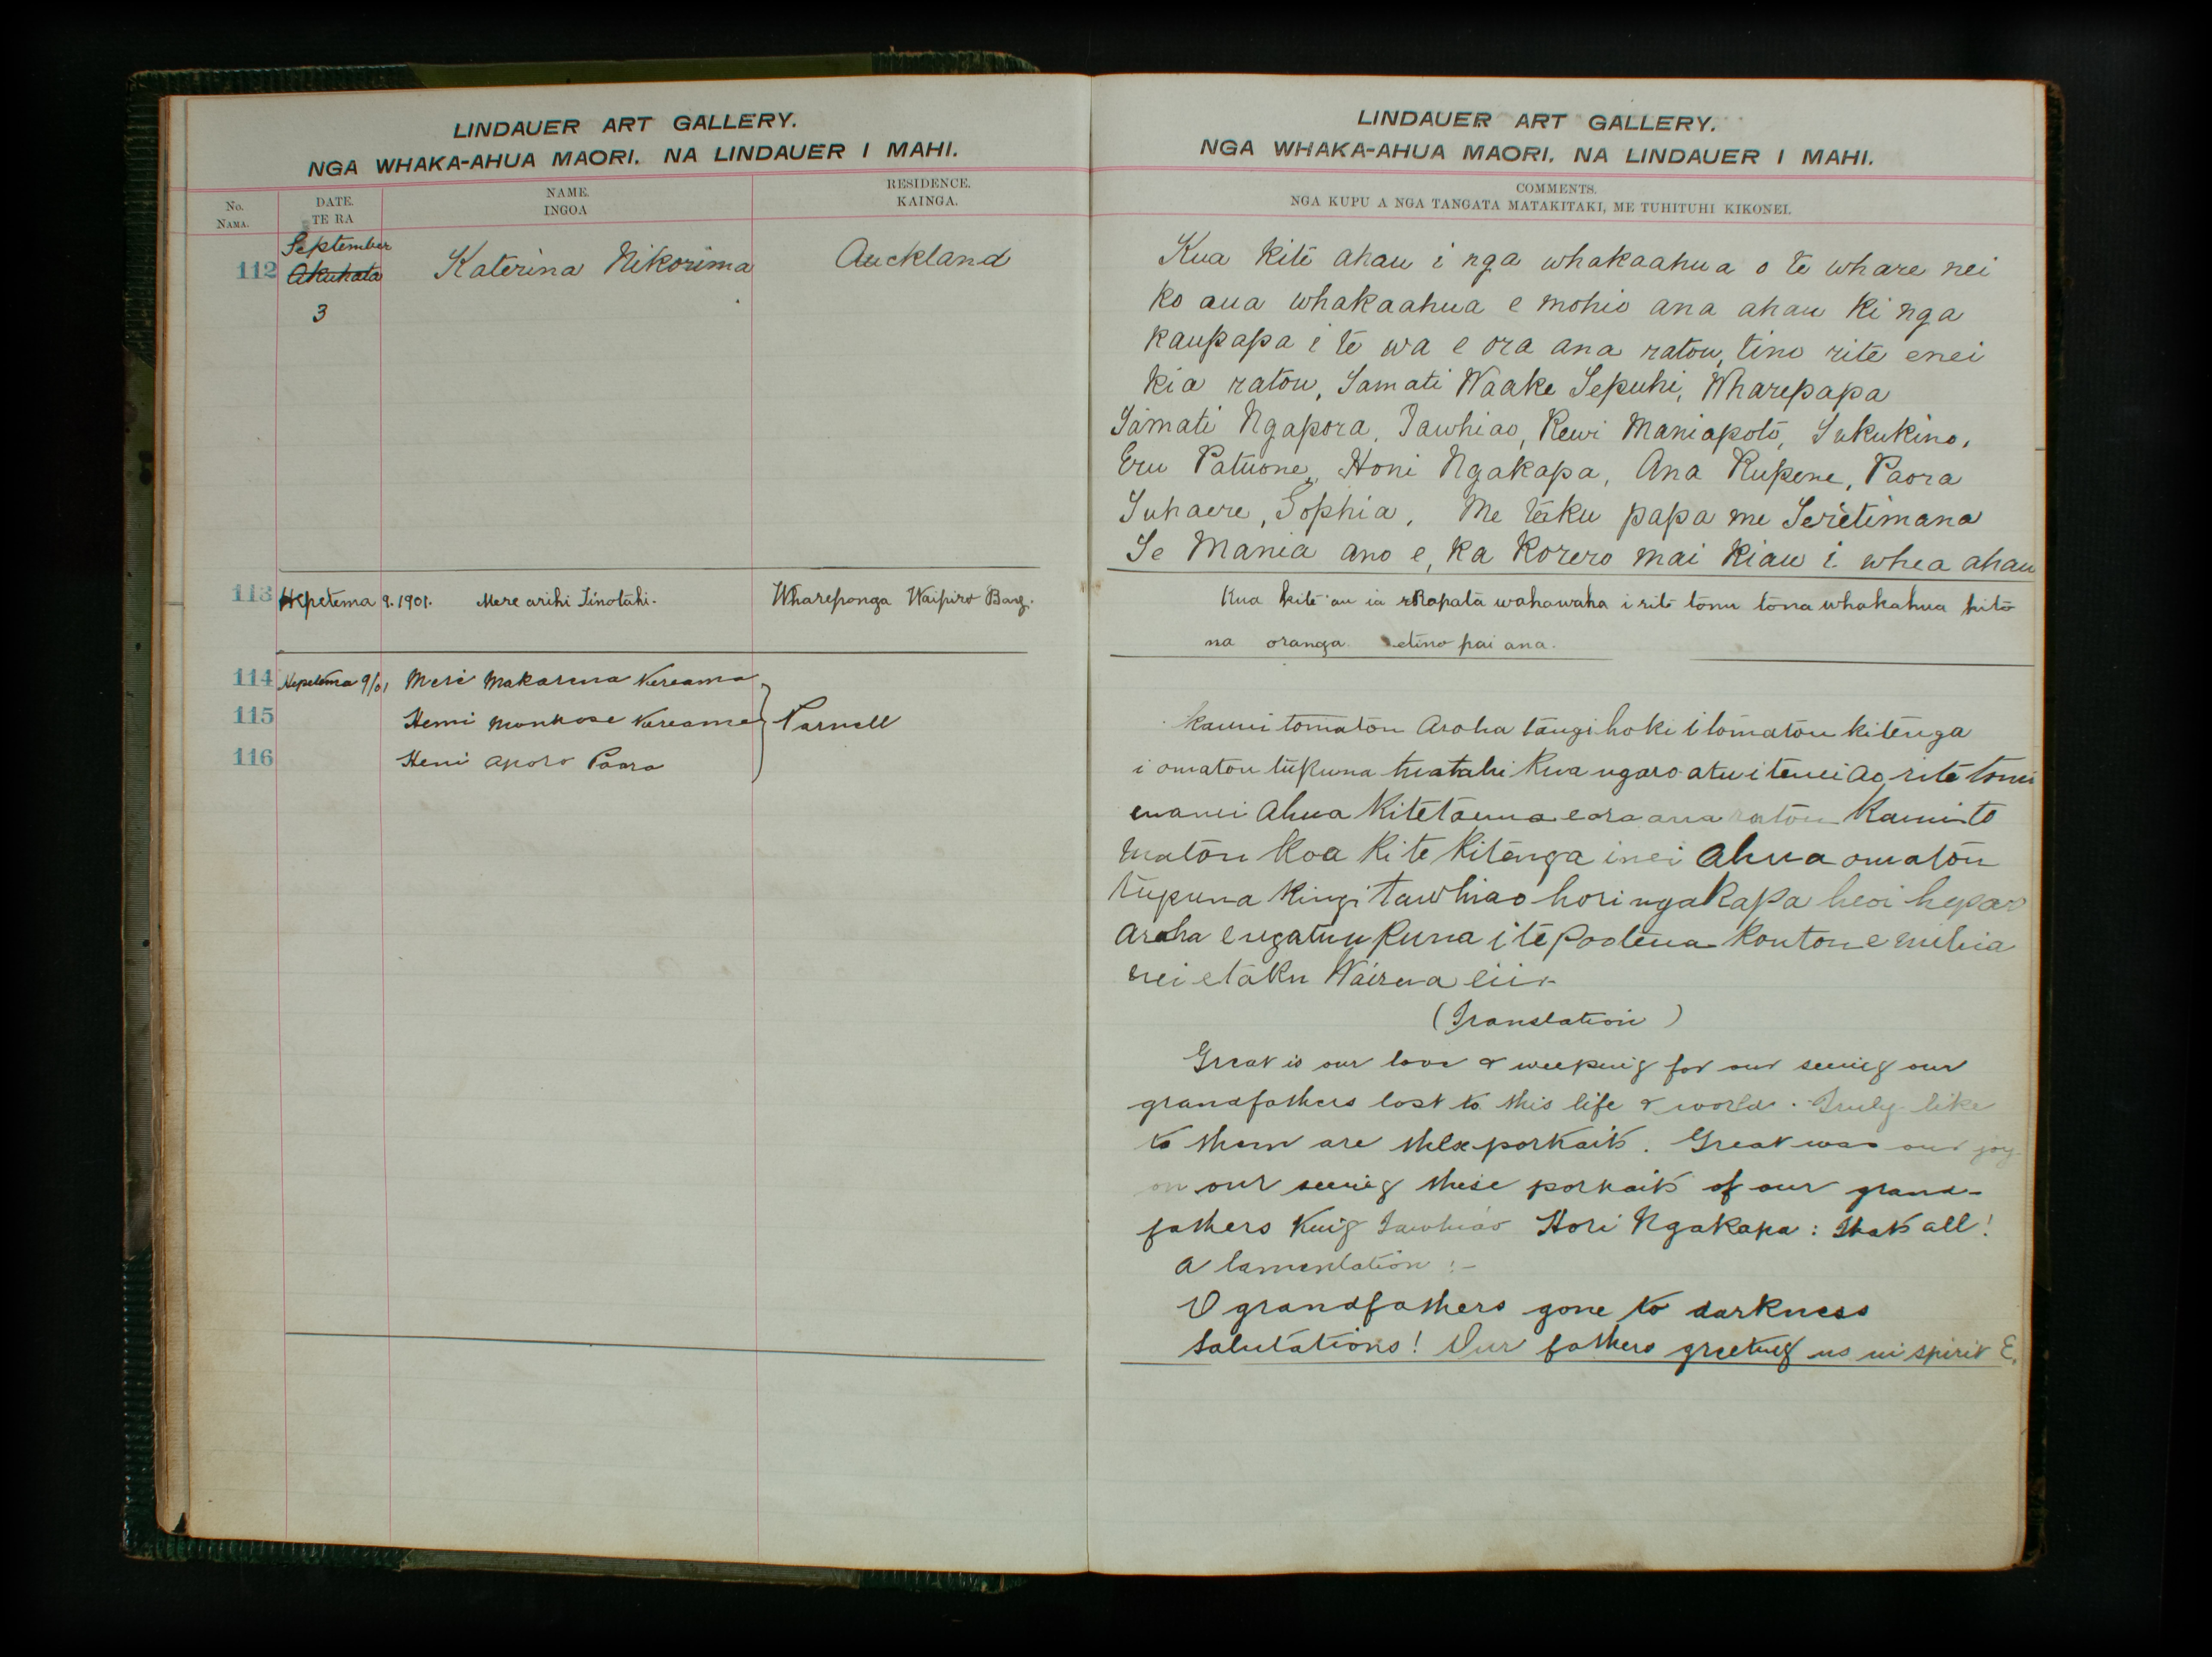 LINDAUER ART GALLERY.
NGA WHAKA-AHUA MAORI. NA LINDAUER I MAHI.
No.
NAMA.
DATE.
TE RA
NAME.
INGOA
RESIDENCE.
KAINGA.
September
112 Akuhata Katerina Nikorima Auckland
3
113 Hepetema 9.1901. Mere arihi Tinotahi. Whareponga Waipiro Bay.
114 Hepetema 9/01 Mere Makarena Kereama
115 Hemi Monrose Kereama Parnell
116 Heni Aporo Paora
LINDAUER ART GALLERY.
NGA WHAKA-AHUA MAORI. NA LINDAUER I MAHI.
COMMENTS.
NGA KUPU A NGA TANGATA MATAKITAKI, ME TUHITUHI KIKONEI.
Kua kite ahau i nga whakaahua o te whare nei
ko aua whakaahua e mohio ana ahau ki nga
kaupapa i te wa e ora ana ratou, tino rite enei
kia ratou, Tamati Waake Tepuhi, Wharepapa
Tamati Ngapora, Tawhiao, Rewi Maniapoto, Tukukino,
Eru Patuone, Honi Ngakapa, Ana Rupene, Paora
Tuhaere, Sophia, Me taku papa me Terietimana
Te Mania ano e, ka korero mai kiau i whea ahau
Kua kite au ia Rapata wahawaha i rite tonu tona whakahua kito
na oranga etino pai ana.
kanui tomatou Aroha tangi hoki i tomatou kitenga
i omatou tupuna matahi kua ngaro atu i tenei Ao rite tonu
enanei Ahua kitetauna e ora ana ratou Kanui to
matou koa ki te kitenga inei Ahua omatou
tupuna kingi tawhiao hori ngakapa heoi hepao
Aroha engatuu puna i te Pootena koutou e mihia
nei etaku Wairua eii
(Translation)
Great is our love & weeping for our seeing our
grandfathers lost to this life & world. Truly like
to them are these portraits. Great was our joy
on our seeing these portraits of our grand-
fathers King Tawhiao Hori Ngakapa: thats all!
A lamentation :-
O grandfathers gone to darkness
Salutations! Our fathers greeting us in spirit E.